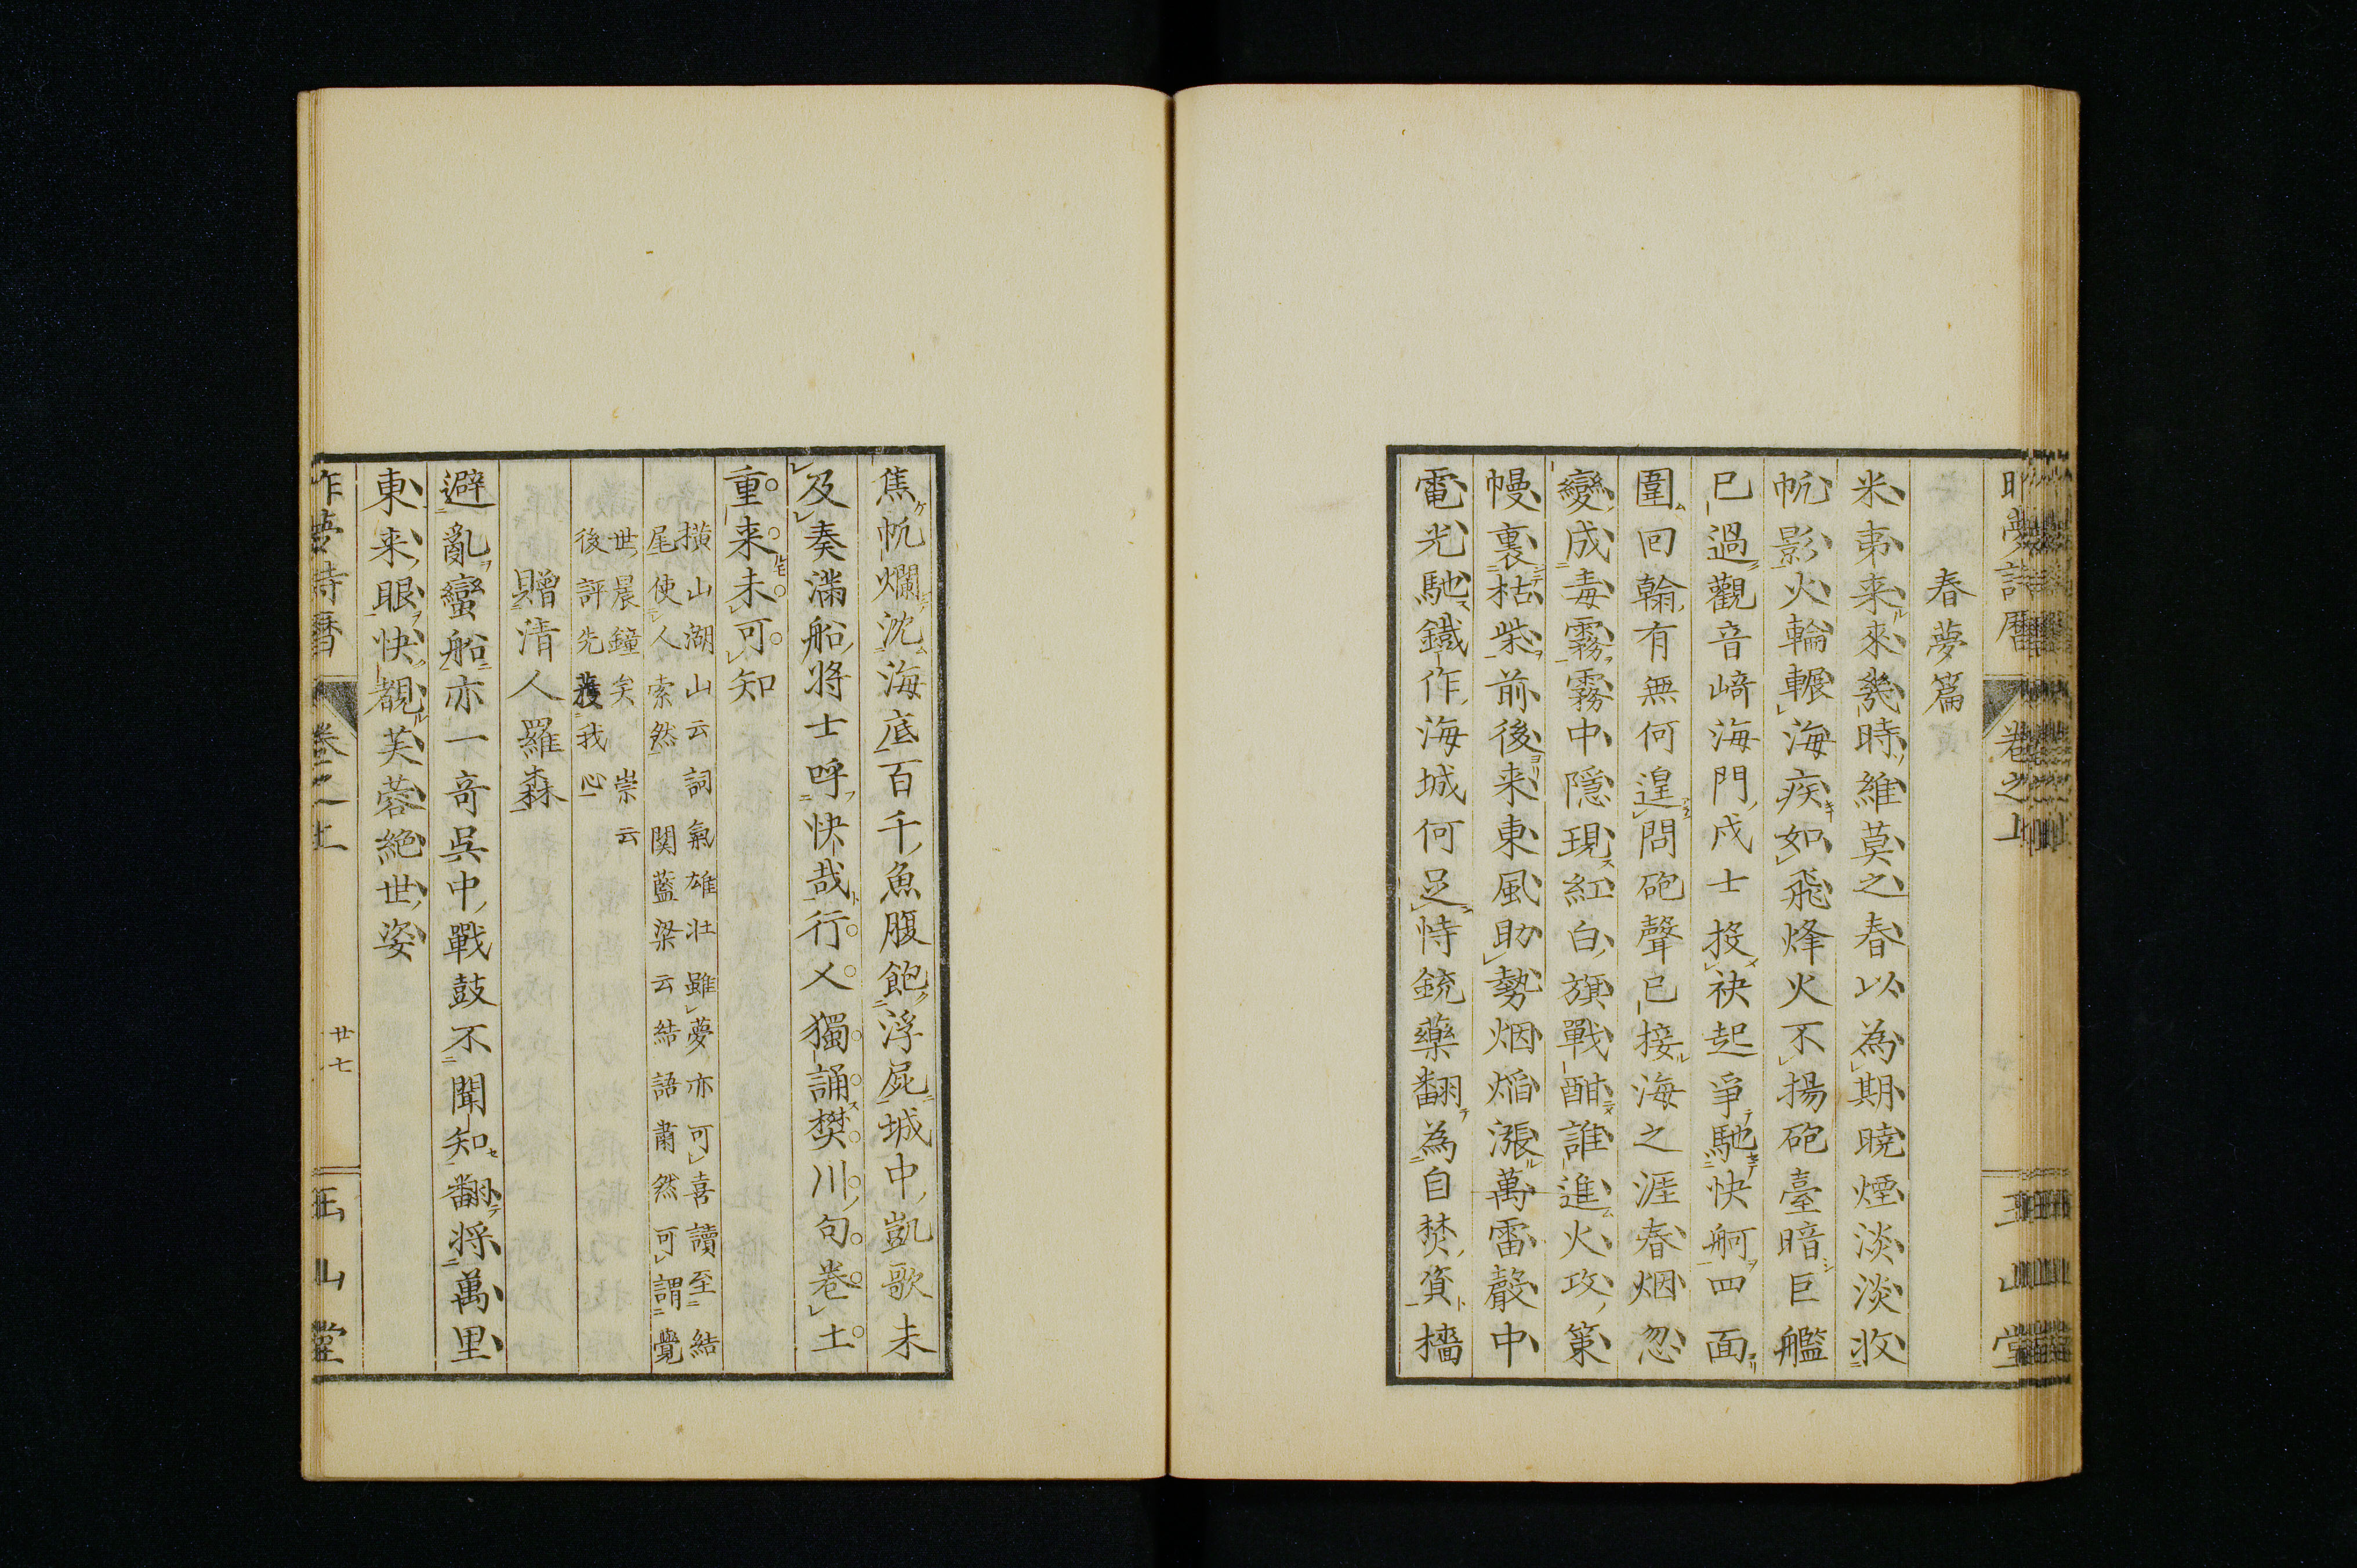 昨夢詩曆 卷之上 玉山堂
春夢篇
米夷来來幾時維莫之春以為期曉煙淡淡收
帆影火輪輾海疾如飛烽火不揚砲臺暗巨艦
已過觀音﨑海門戍士投袂起爭馳快舸四面
圍回翰有無何遑問砲聲已接海之涯春烟忽
變成毒霧霧中隱現紅白旗戰酣誰進火攻策
幔裏枯柴前後来東風助勢烟焰漲萬雷聲中
電光馳鐵作海城何足恃銃藥翻為自焚資檣
焦帆爛沈海底百千魚腹飽浮屍城中凱歌未
及奏滿船將士呼快哉行人獨誦樊川句卷土
重来未可知
橫山湖山云詞氣雄壯雖夢亦可喜讀至結
尾使人索然 関藍梁云結語肅然可謂覺
世晨鐘矣 崇云
後評先獲我心
贈清人羅森
避亂蠻船亦一奇吳中戰鼓不聞知翻將萬里
東来眼快覩芙蓉絕世姿
昨夢詩曆 卷之上 廿七 玉山堂